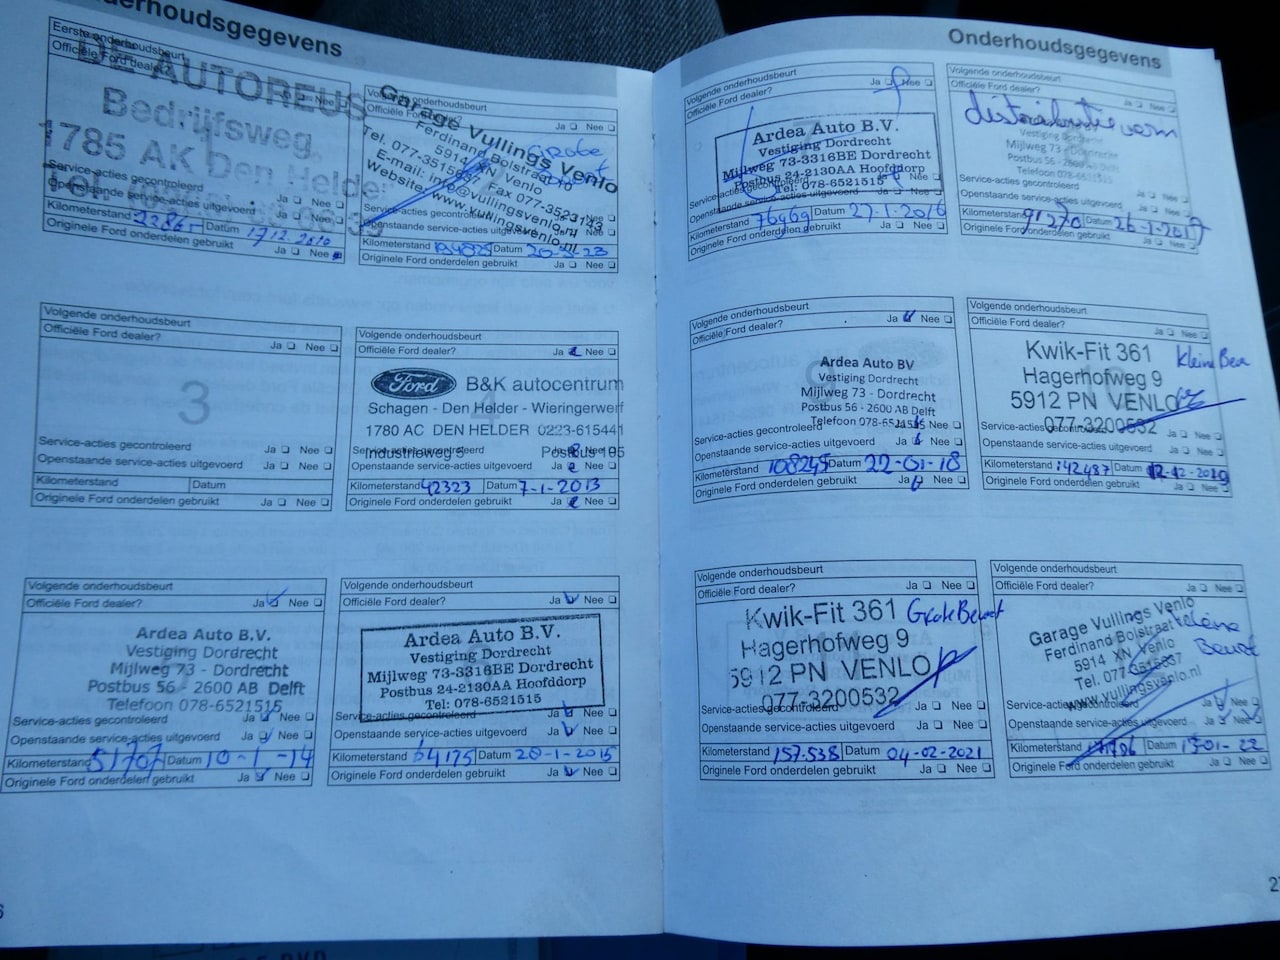 Onderhoudsgegevens
Eerste onderhoudsbeurt
Officiële Ford dealer?
DE AUTOREUS
Bedrijfsweg
1785 AK Den Helder
Service-acties gecontroleerd
Openstaande service-acties uitgevoerd Ja Nee
Kilometerstand Datum 17.12.2010
Originele Ford onderdelen gebruikt Ja Nee
Volgende onderhoudsbeurt
Officiële Ford dealer? Ja Nee
Garage Vullings Venlo
Ferdinand Bolstraat 10
5914 XN Venlo
Fax 077-3523173
E-mail: info@vullingsvenlo.nl
Website: www.vullingsvenlo.nl
Grobe
Service-acties gecontroleerd
Openstaande service-acties uitgevoerd
Kilometerstand Datum 20-3-23
Originele Ford onderdelen gebruikt Ja Nee
Volgende onderhoudsbeurt
Officiële Ford dealer? Ja Nee
3
Service-acties gecontroleerd Ja Nee
Openstaande service-acties uitgevoerd Ja Nee
Kilometerstand Datum
Originele Ford onderdelen gebruikt Ja Nee
Volgende onderhoudsbeurt
Officiële Ford dealer? Ja Nee
Ford B&K autocentrum
Schagen - Den Helder - Wieringerwerf
1780 AC DEN HELDER 0223-615441
Industrieweg 5 Postbus 105
Service-acties gecontroleerd Ja Nee
Openstaande service-acties uitgevoerd Ja Nee
Kilometerstand 42323 Datum 7-1-2013
Originele Ford onderdelen gebruikt Ja Nee
Volgende onderhoudsbeurt
Officiële Ford dealer? Ja Nee
Ardea Auto B.V.
Vestiging Dordrecht
Mijlweg 73 - Dordrecht
Postbus 56 - 2600 AB Delft
Telefoon 078-6521515
Service-acties gecontroleerd Ja Nee
Openstaande service-acties uitgevoerd Ja Nee
Kilometerstand 51707 Datum 10-1-14
Originele Ford onderdelen gebruikt Ja Nee
Volgende onderhoudsbeurt
Officiële Ford dealer? Ja Nee
Ardea Auto B.V.
Vestiging Dordrecht
Mijlweg 73-3316BE Dordrecht
Postbus 24-2130AA Hoofddorp
Tel: 078-6521515
Service-acties gecontroleerd Ja Nee
Openstaande service-acties uitgevoerd Ja Nee
Kilometerstand 64175 Datum 20-1-2015
Originele Ford onderdelen gebruikt Ja Nee
Onderhoudsgegevens
Volgende onderhoudsbeurt
Officiële Ford dealer? Ja Nee
Ardea Auto B.V.
Vestiging Dordrecht
Mijlweg 73-3316BE Dordrecht
Postbus 24-2130AA Hoofddorp
Tel: 078-6521515
Service-acties gecontroleerd
Openstaande service-acties uitgevoerd Ja Nee
Kilometerstand 76969 Datum 27-1-2016
Originele Ford onderdelen gebruikt Ja Nee
Volgende onderhoudsbeurt
Officiële Ford dealer? Ja Nee
distributieriem
Vestiging Dordrecht
Mijlweg 73 - Dordrecht
Postbus 56 - 2600 AB Delft
Telefoon 078-6521515
Service-acties gecontroleerd
Openstaande service-acties uitgevoerd Ja Nee
Kilometerstand 91370 Datum 26-1-2017
Originele Ford onderdelen gebruikt Ja Nee
Volgende onderhoudsbeurt
Officiële Ford dealer? Ja Nee
Ardea Auto BV
Vestiging Dordrecht
Mijlweg 73 - Dordrecht
Postbus 56 - 2600 AB Delft
Telefoon 078-6521515
Service-acties gecontroleerd Ja Nee
Openstaande service-acties uitgevoerd Ja Nee
Kilometerstand 108245 Datum 22-01-18
Originele Ford onderdelen gebruikt Ja Nee
Volgende onderhoudsbeurt
Officiële Ford dealer? Ja Nee
Kwik-Fit 361
Hagerhofweg 9
5912 PN VENLO
077-3200532
Kleine Beu
Service-acties gecontroleerd Ja Nee
Openstaande service-acties uitgevoerd Ja Nee
Kilometerstand 142487 Datum 12-12-2019
Originele Ford onderdelen gebruikt Ja Nee
Volgende onderhoudsbeurt
Officiële Ford dealer? Ja Nee
Kwik-Fit 361
Hagerhofweg 9
5912 PN VENLO
077-3200532
Grote Beurt
Service-acties gecontroleerd Ja Nee
Openstaande service-acties uitgevoerd Ja Nee
Kilometerstand 157.538 Datum 04-02-2021
Originele Ford onderdelen gebruikt Ja Nee
Volgende onderhoudsbeurt
Officiële Ford dealer? Ja Nee
Garage Vullings Venlo
Ferdinand Bolstraat
5914 XN Venlo
www.vullingsvenlo.nl
kleine
Beurt
Service-acties gecontroleerd Ja Nee
Openstaande service-acties uitgevoerd Ja Nee
Kilometerstand Datum 13-01-22
Originele Ford onderdelen gebruikt Ja Nee